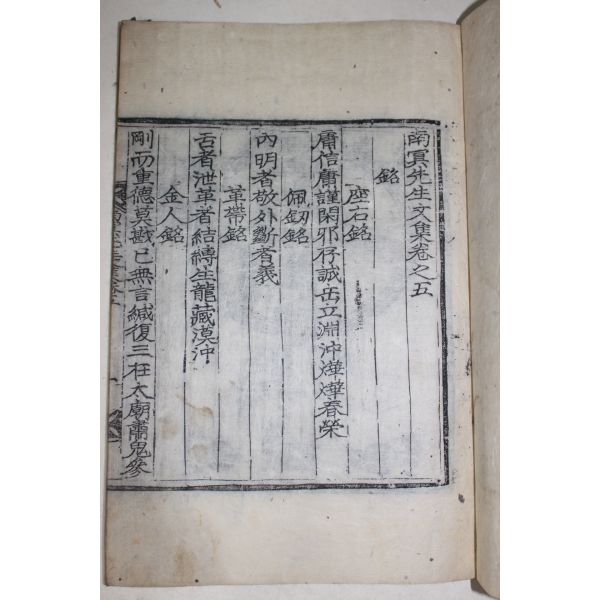 南冥先生文集卷之五
銘
座右銘
庸信庸謹閑邪存誠岳立淵沖燁燁春榮
佩劒銘
內明者敬外斷者義
革帶銘
舌者泄革者結縛生龍藏漠沖
金人銘
剛而重德莫戡已無言緘復三在太廟肅鬼參